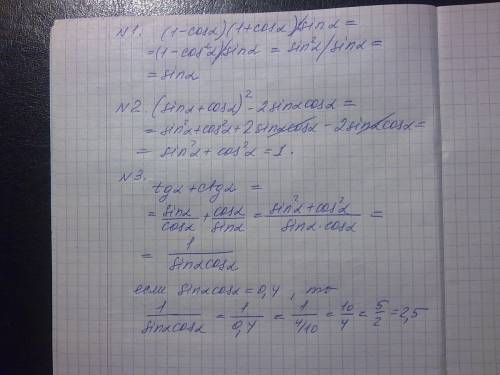 N1. (1-cosα)(1+cosα)/sinα =
=(1-cos²α)/sinα = sin²α/sinα =
= sinα
N2. (sinα+cosα)² - 2sinαcosα =
= sin²α+cos²α+2sinαcosα - 2sinαcosα =
= sin²α + cos²α = 1.
N3.
tgα + ctgα =
= sinα/cosα + cosα/sinα = sin²α+cos²α/sinα·cosα =
= 1/sinαcosα
если sinαcosα = 0,4, то
1/sinαcosα = 1/0,4 = 1/4/10 = 10/4 = 5/2 = 2,5